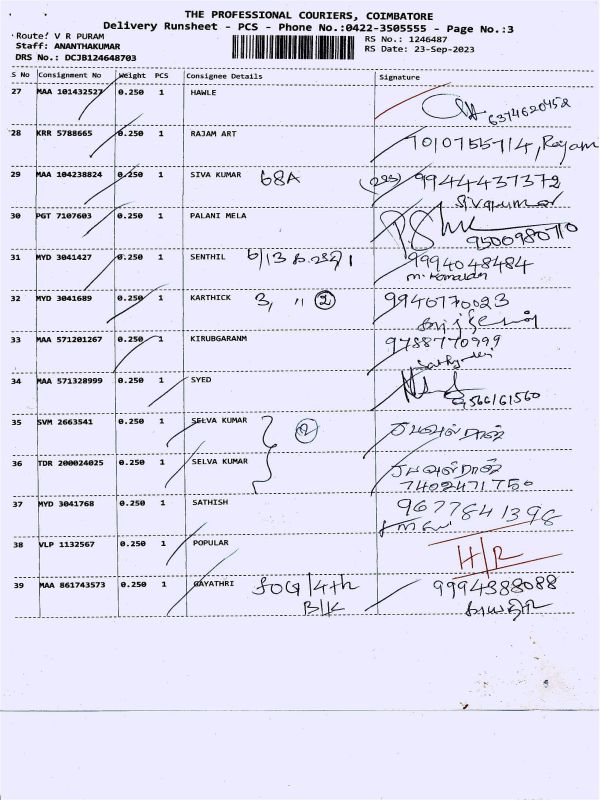 THE PROFESSIONAL COURIERS, COIMBATORE
Delivery Runsheet - PCS - Phone No.:0422-3505555 - Page No.:3
Route: V R PURAM
RS No.: 1246487
Staff: ANANTHAKUMAR
RS Date: 23-Sep-2023
DRS No.: DCJB124648703
S No Consignment No Weight PCS Consignee Details Signature
27 MAA 101432527 0.250 1 HAWLE
6374620452
28 KRR 5788665 0.250 1 RAJAM ART 7010755714, Rajam
29 MAA 104238824 0.250 1 SIVA KUMAR 68A 9944437372
Sivakumar
30 PGT 7107603 0.250 1 PALANI MELA
9500980710
31 MYD 3041427 0.250 1 SENTHIL 9994048484
32 MYD 3041689 0.250 1 KARTHICK 3, " 2 9940770023
33 MAA 571201267 0.250 1 KIRUBGARANM 9788770999
34 MAA 571328999 0.250 1 SYED
9566161560
35 SVM 2663541 0.250 1 SELVA KUMAR 2
36 TDR 200024025 0.250 1 SELVA KUMAR
7402471750
37 MYD 3041768 0.250 1 SATHISH 9677841398
38 VLP 1132567 0.250 1 POPULAR H/R
39 MAA 861743573 0.250 1 GAYATHRI 9994388088
B/K